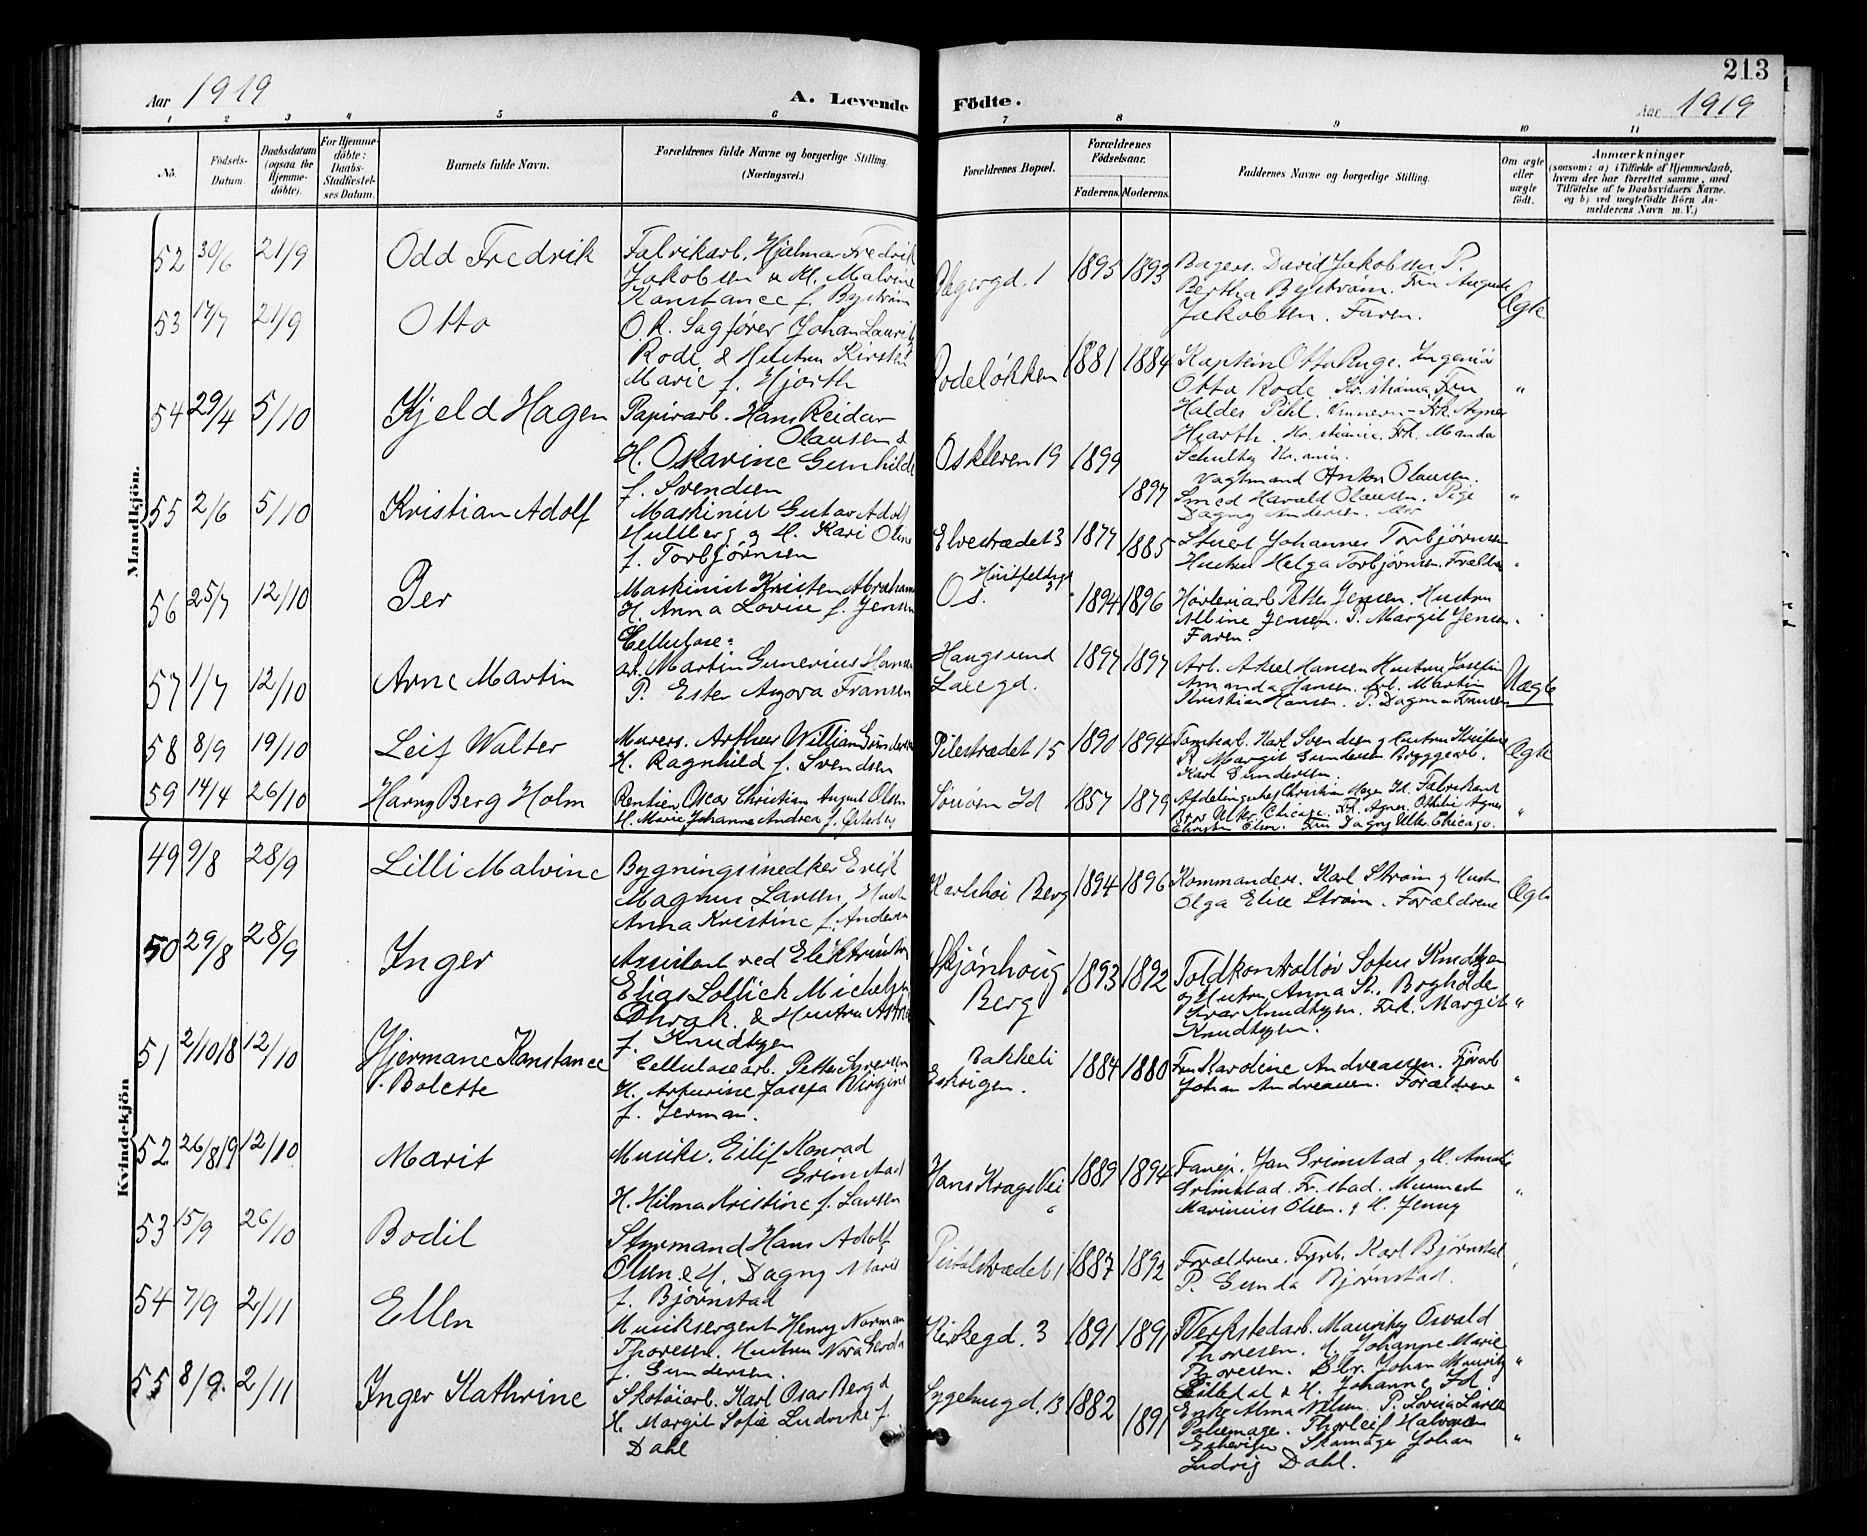 213
Aar 1919
A. Levende Födte.
Aar 1919
1 2 3 4 5 6 7 8 9 10 11
No.
Födsels-
Datum.
Daabsdatum
(ogsaa for
Hjemme-
döbte).
For Hjemme-
döbte:
Daabs-
Stadfæstel-
ses Datum.
Barnets fulde Navn.
Forældrenes fulde Navne og borgerlige Stilling.
(Næringsvei.)
Forældrenes Bopæl.
Forældrenes
Födselsaar.
Faderens. Moderens.
Faddernes Navne og borgerlige Stilling.
Om ægte
eller
uægte
födt.
Anmærkninger
(saasom: a) i Tilfælde af Hjemmedaab,
hvem der har forrettet samme, med
Tilföielse af to Daabsvidners Navne.
og b) ved uægtefödte Börn An-
melderens Navn m. V.)
Mandkjön.
52 30/6 21/9 Odd Fredrik
Fabrikarb. Hjalmar Fredrik
Jakobsen & H. Malvine
Konstance f. Byström
1 1895 1893
David Jakobsen P.
Bertha Byström. Fru Auguste
Jakobsen. Faren.
Ægte
53 17/7 21/9 Otto
O.R. Sagfører Johan Lauritz
Rode & Hustru Kirsten
Marie f. Hjorth
Rodeløkken 1881 1884
Kaptein Otto Ruge. Ingeniør
Otto Rode Kr.stiania, Fru
Haldes Pihl. Vinneren - Frk. Agnes
Hjorth. Kr.stiania. Frk. Manda
Schultz Kr.ania.
"
54 29/4 5/10 Kjeld Hagen
Papirarb. Hans Reidar
Olausen &
H. Oskarine Gunhilde
f. Svendsen
Oskleven 19 1899 1897
Vagtmand Anton Olausen.
Smed Harald Olausen. Pige
Dagny Andersen.
"
55 2/6 5/10 Kristian Adolf
Maskinist Gustav Adolf
Hullberg og H. Kari Oline
f. Torbjørnsen
Elvestrædet 3 1877 1885
Stuert Johannes Torbjørnsen
Hustru Helga Torbjørnsen. Forældre
"
56 25/7 12/10 Per
Maskinist Kristen Abraham
H. Anna Lovise f. Jensen
Os. Huitfeldtsgt 1894 1896
Høvleriarb Petter Jensen. Hustru
Albine Jensen. P. Margit Jensen.
Faren.
57 1/7 12/10 Arne Martin
Cellulose-
arb. Martin Gunerius Hansen
P. Ester Angora Fransen
Haugsund
1897 1897
Arb. Aksel Hansen Hustru Josefin
Amanda Hansen. Arb. Martin
Kristian Hansen. P. Dagmar Fransen
Uægte
58 8/9 19/10 Leif Walter
Murers. Arthur William Gundersen
H. Ragnhild f. Svendsen
Pilestrædet 15 1890 1894
Tomtearb. Karl Svendsen og Hustru
P. Margit Gundersen Bryggearb.
Karl Gundersen.
Ægte
59 14/4 26/10 Harry Berg Holm
Rentier Oscar Christian August Olsen
H. Marie Johanne Andrea f. Østerberg
Id 1857 1879
Afdelingschef Christian Id. Fabrikant
Chicago. Frk. Agnes Othilie Agnes
Fru Dagny Chicago.
"
Kvindekjön
49 9/8 28/9 Lilli Malvine
Bygningssnedker Erik
Magnus Larsen, Hust.
Anna Kristine f. Andersen
Karlshøi Berg 1894 1896
Kommanders. Karl Strøm og Hust.
Olga Elise Strøm. Forældrene
Ægte
50 29/8 28/9 Inger
Assistent ved
Elias Michelsen
& Hustru
f. Knudtzen
Skjønhoug
Berg
1893 1892
Toldkontrollør Sofus Knudtzen
og Hustru Anna K. Bogholder
Ivar Knudtzen. Frk. Margit
Knudtzen.
"
51 2/10 18 12/10 Hjermane Konstance
Bolette
Cellulosearb. Petter Syversen
H. Arturine Josefa Virginie
f. Jerman.
Bakkeli
1884 1880
Fru Karoline Andreassen. Fjorarb
Johan Andreassen. Forældrene
"
52 26/8 19 12/10 Marit
Musike. Eilif Konrad
Grimstad
H. Hilma Kristine f. Larsen
Hans Krags Vei
1889 1894
Jan Grimstad og H. Amalie
Grimstad. Fr.stad. Murmest
Marinius Olsen. og H. Jenny
"
53 15/9 26/10 Bodil
Styrmand Hans Adolf
Olsen & H. Dagny Marie
f. Bjørnstad
Pistolstrædet 1 1887 1892
Forældrene. Fyrb. Karl Bjørnstad
P. Gunda Bjørnstad.
54 7/9 2/11 Ellen
Musiksergent Henry Norman
Thoresen. Hustru Nora Gerda
f. Gundersen.
Kirkegd. 3 1891 1891
Verkstedarb. Mauritz Osvald
Thoresen. H. Johanne Marie
Thoresen. Johan Mauritz
Lilledal & H. Johanne, Id
"
55 8/9 2/11 Inger Kathrine
Skotøiarb. Karl Osar Berg &
H. Margit Sofie Ludvike f.
Dahl
Sygehusgd. 13 1882 1891
Enke Alma Nilsen. P. Lovisa Larsen
Thorleif Halvorsen
Skomager Johan
Ludvig Dahl.
"